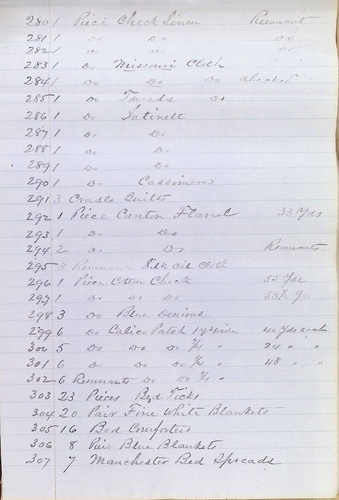 280 1 Piece Check Linen Remnant
281 1 Do Do Do
282 1 Do Do Do
283 1 Do Missouri Cloth
284 1 Do Do Do checked
285 1 Do Tweeds Do
286 1 Do Satinett
287 1 Do Do
288 1 Do D.
289 1 Do Do
290 1 Do Cassimere
291 3 Cradle Quilts
292 1 Piece Canton Flanel 33 Yds
293 1 Do Do
294 2 Do Do Remnants
295 3 Remnants Silk Oil Cloth
296 1 Piece Cotton Check 55 Yds
297 1 Do Do Do 55½ Yds
298 3 Do Blue Denims
299 6 Do Calico Patch wide 40 Yds each
300 5 Do Do Do ¾ " 24 " "
301 6 Do Do Do ¾ " 48 " "
302 6 Remnants Do Do ¾ "
303 23 Pieces Bed Ticks
304 20 Pair Fine White Blankets
305 16 Bed Comforters
306 8 Pair Blue Blankets
307 7 Manchester Bed Spreads